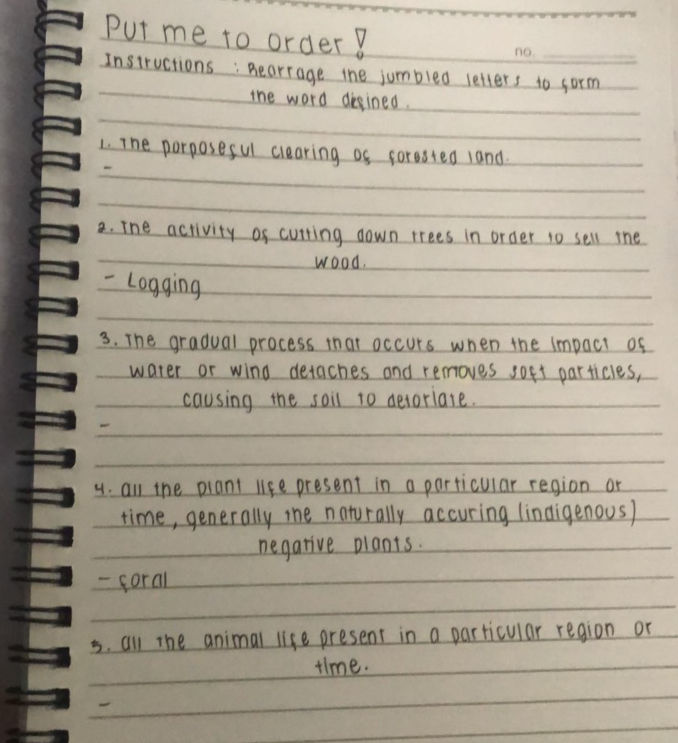 Put me to order!
no.
Instructions : Rearrage the jumbled letters to form
the word defined.
1. The porposeful clearing of forested land.
-
2. The activity of cutting down trees in order to sell the
wood.
- Logging
3. The gradual process that occurs when the impact of
water or wind detaches and removes soft particles,
causing the soil to detoriate.
-
4. all the plant life present in a particular region or
time, generally the naturally accuring (indigenous)
negative plants.
- foral
5. all the animal life present in a particular region or
time.
-